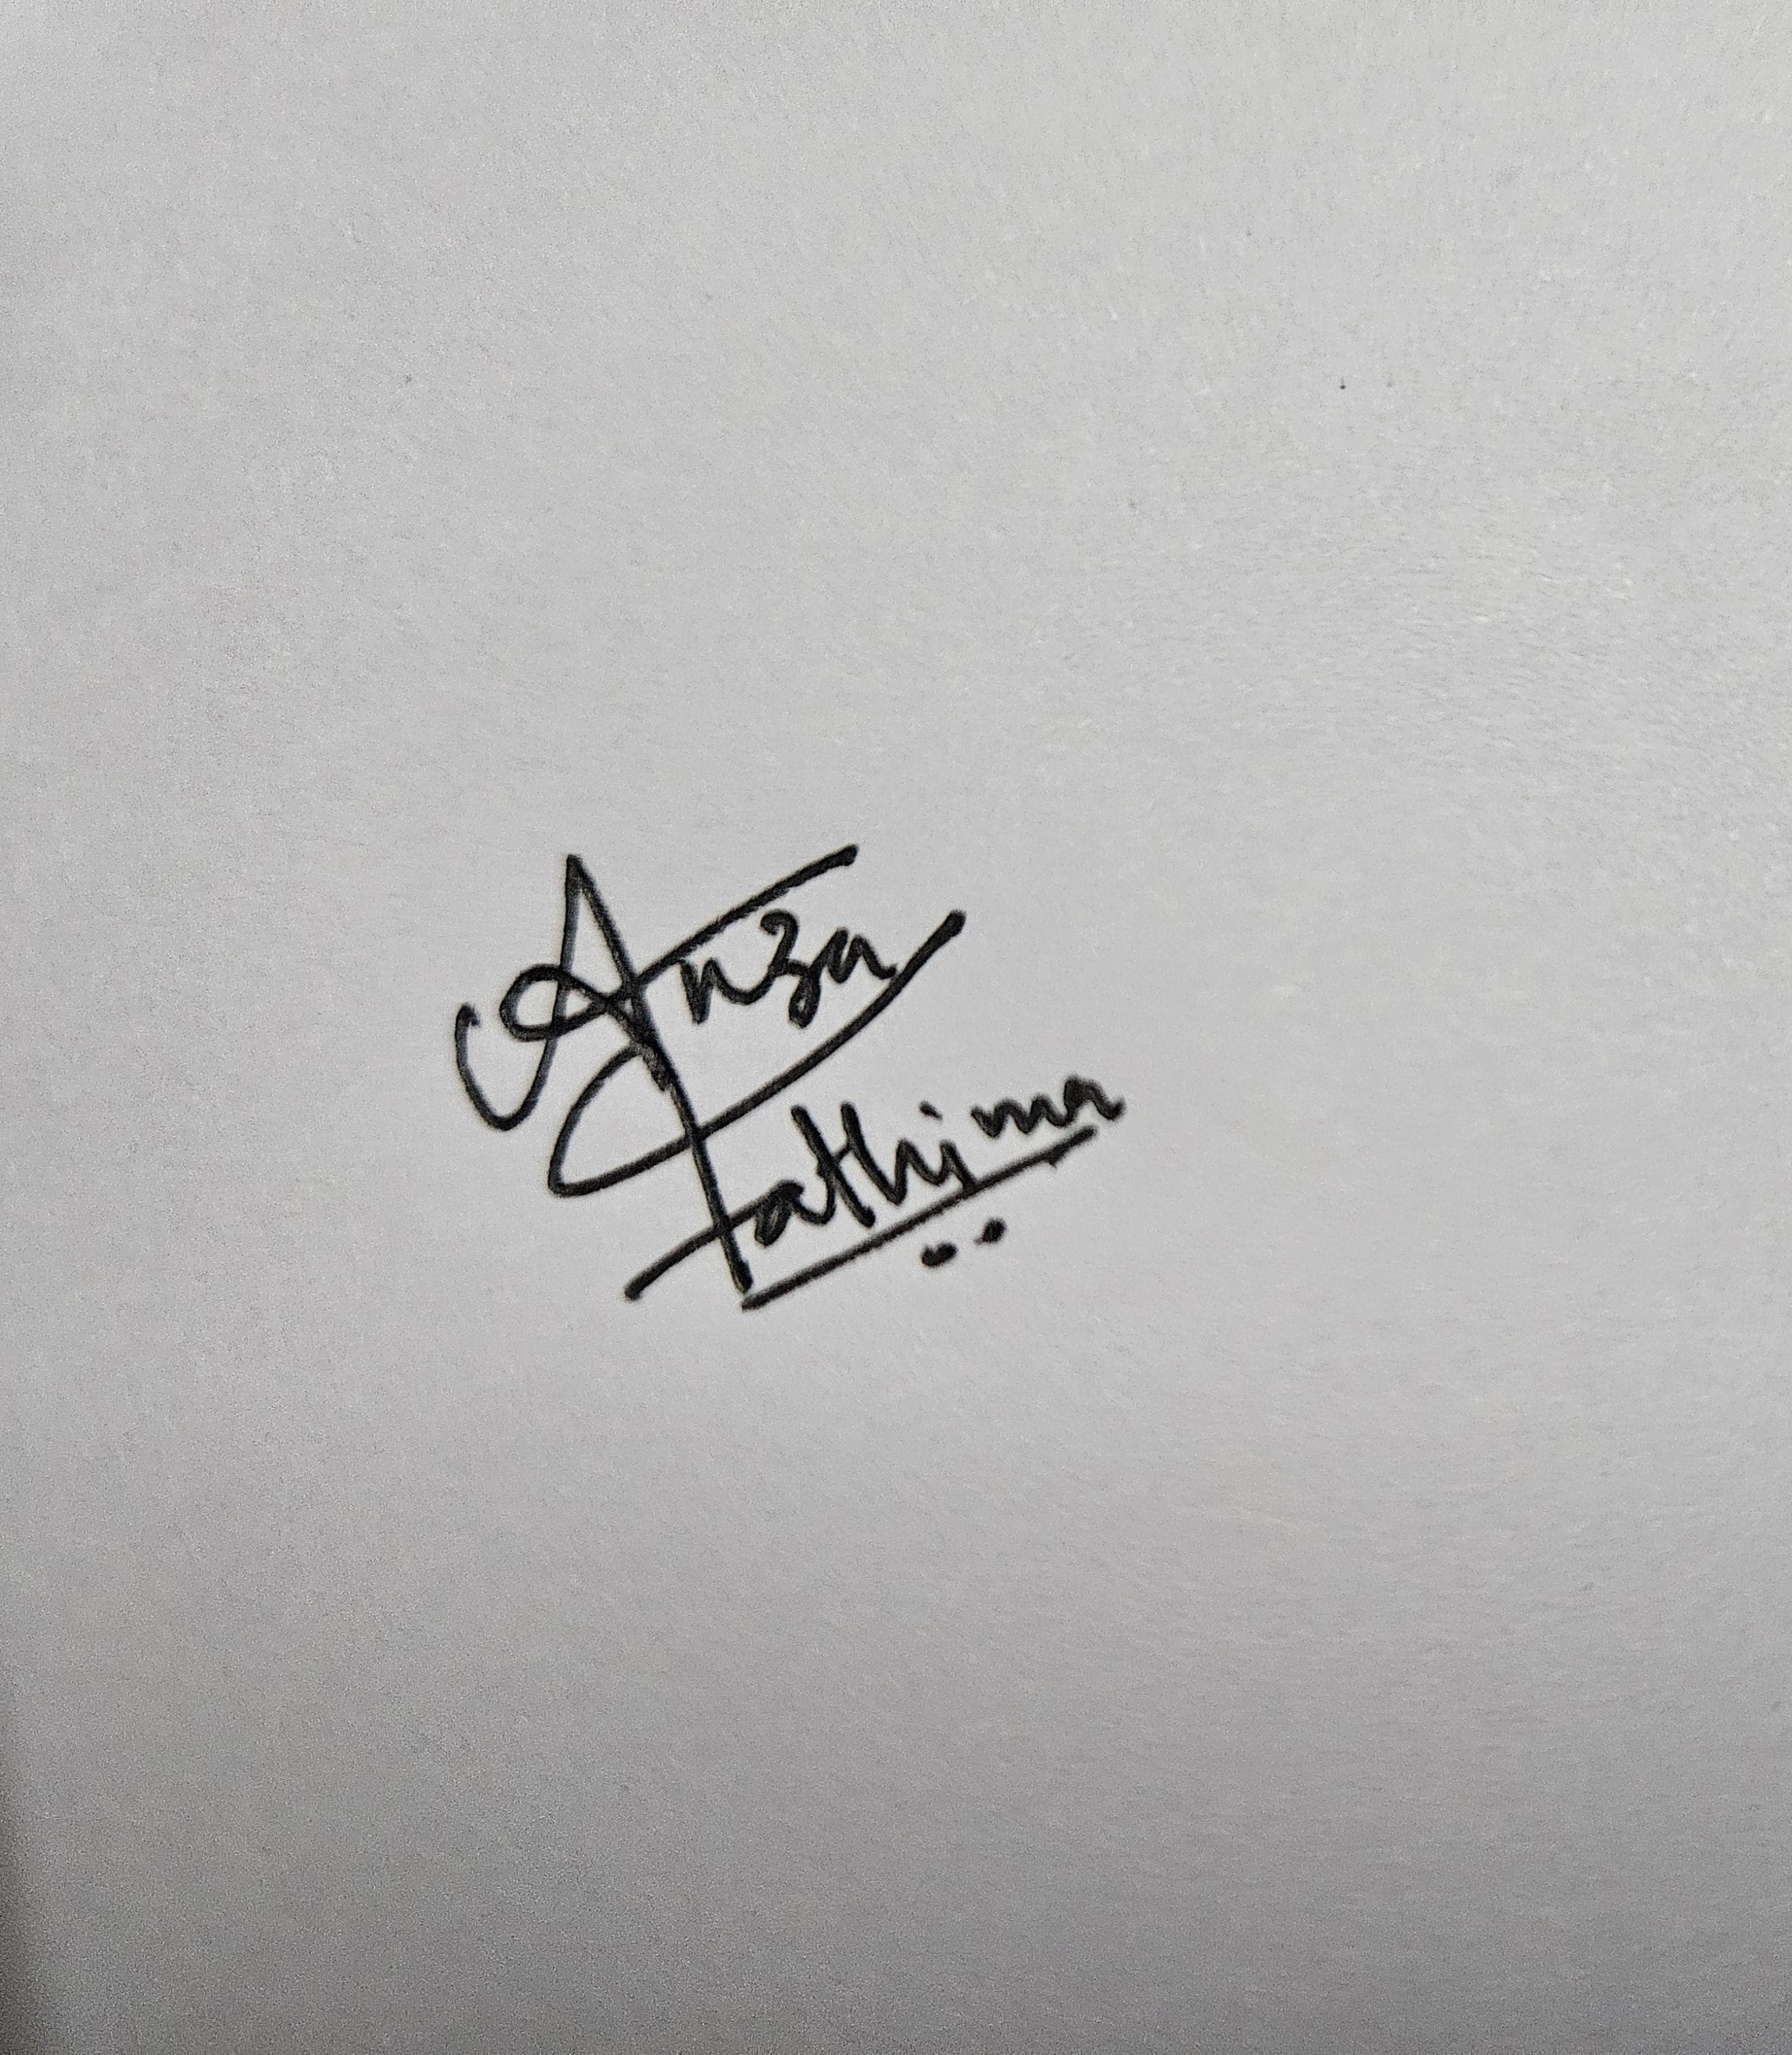 Anza
Fathima